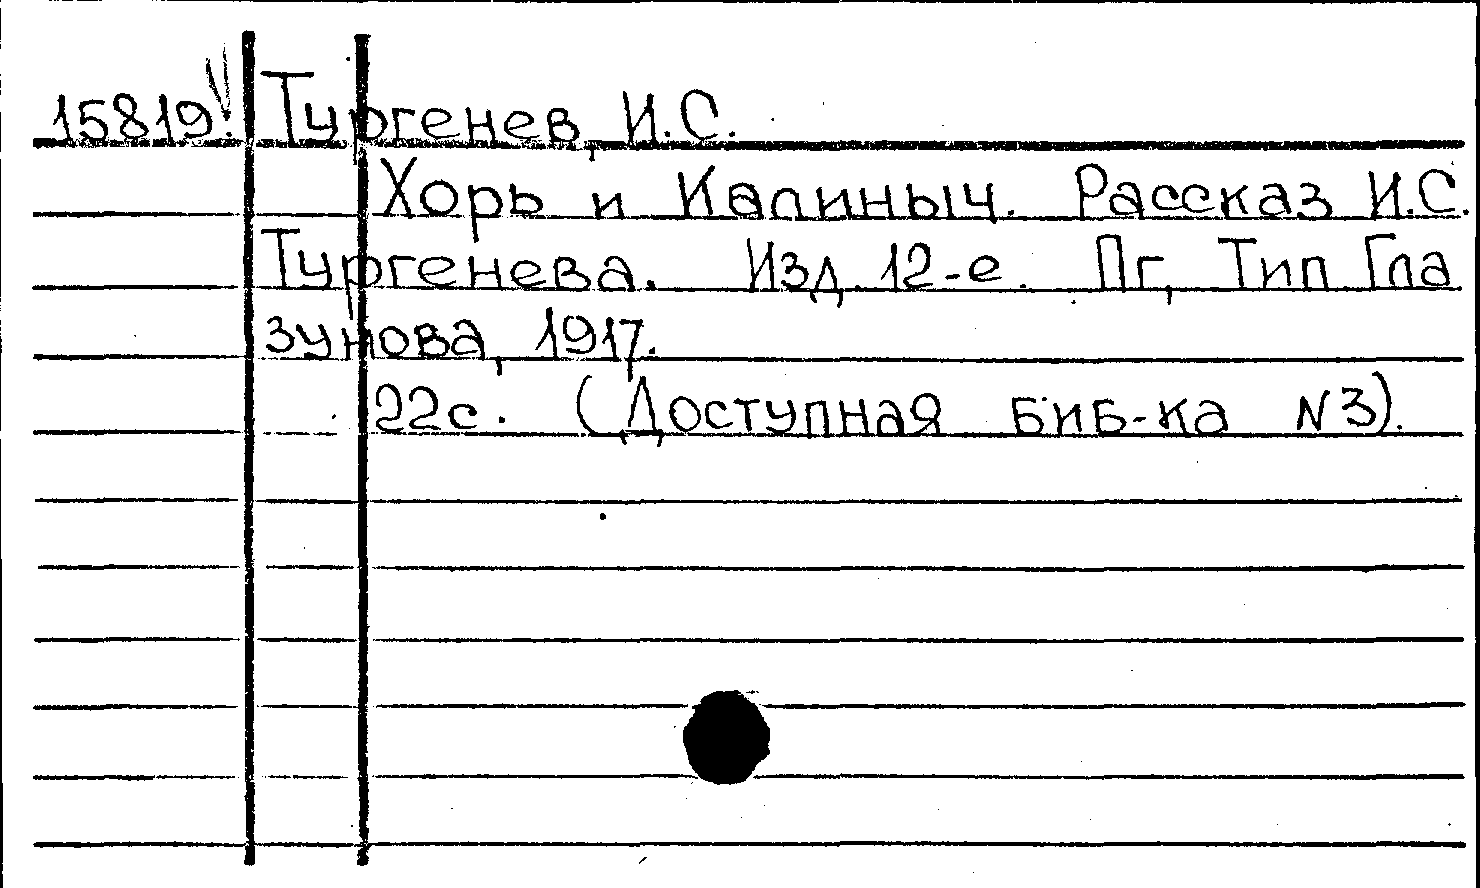 15819. Тургенев, И.С.
Хорь и Калиныч. Рассказ И.С.
Тургенева. Изд. 12-е. Пг, Тип Гла
зунова, 1917.
22с. (Доступная биб-ка N3).